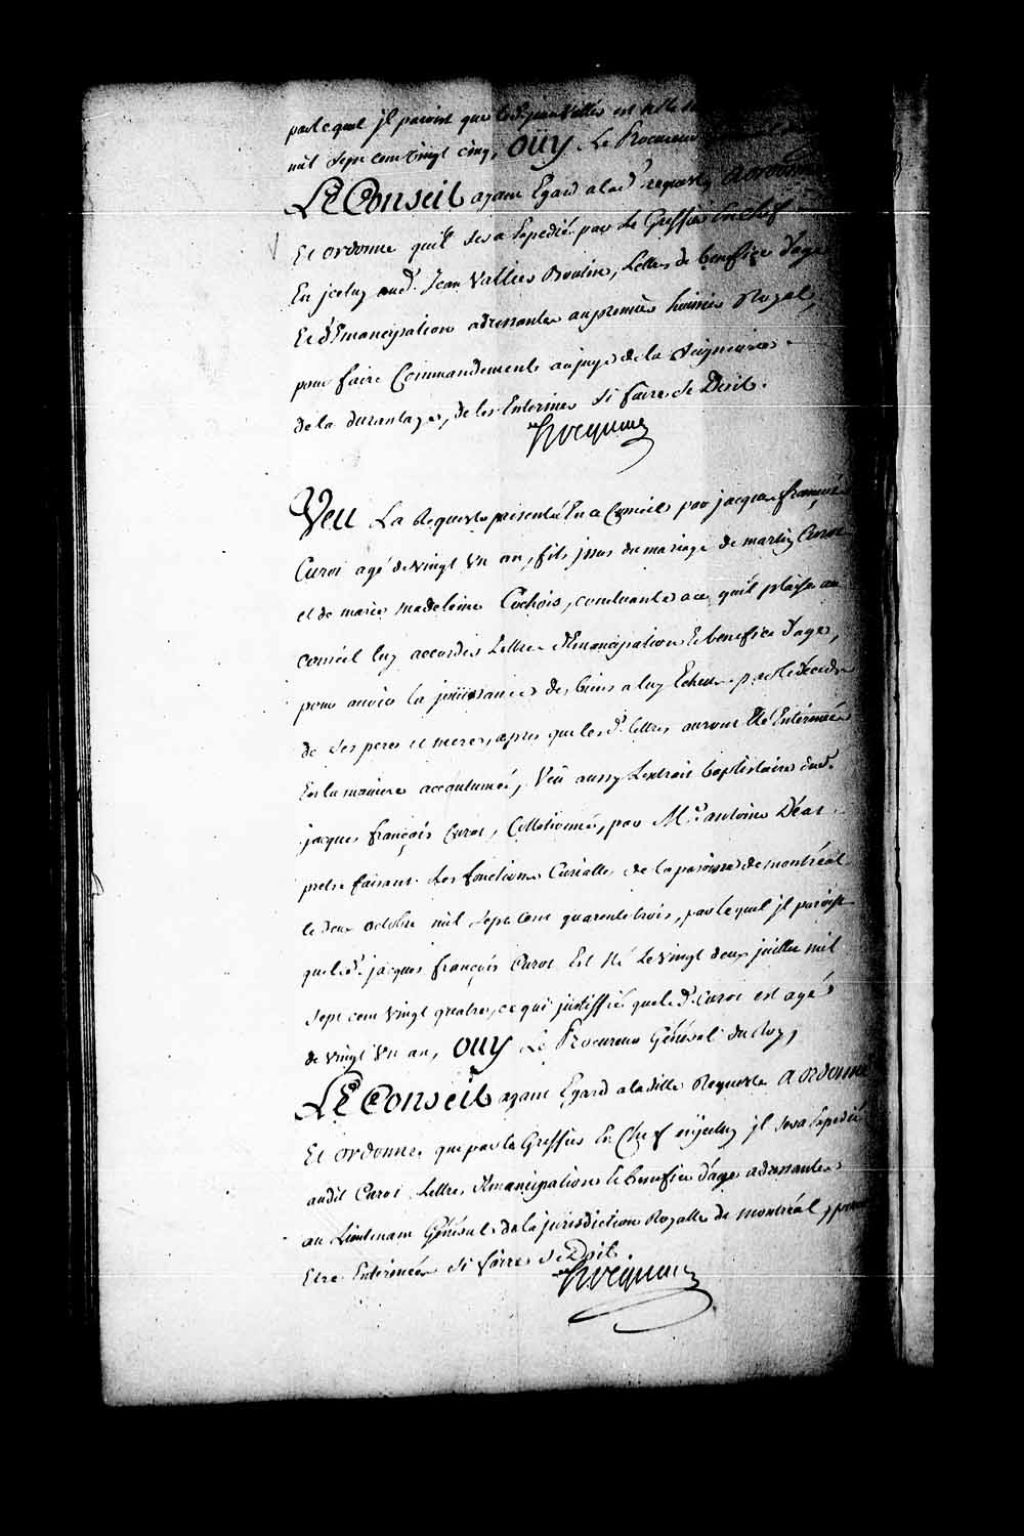 par lequel jl paroist que led. jean Vallier est né le
mil sept cent vingt cinq, OÜY Le Procureur
LE Conseil ayant Egard a lad.e requeste A ordonné
Et ordonne quil sera Expedié par Le Greffier En chef
En jceluy aud. Jean Vallier Boutin, Lettres de benefice d'age
Et d'Emancipation adressantes au premier huissier Royal,
pour faire Commandement au juge de la Seigneurie
de la durantaye, de les Enteriner Si faire se Doit.
Hocquart
Veu La Requeste presentée En ce Conseil par jacques françois
Curot agé de vingt Vn an, fils jssus du mariage de martin Curot
et de marie madeleine Cochois, concluante a ce quil plaise au
conseil luy accorder Lettres d'Emancipation Et benefice d'age,
pour avoir la joüissance des biens a luy Echeus par le décéds
de Ses pere et mere, apres que lesd. lettres auront Eté Enterinées
En la maniere accoutumée, Veü aussy Lextrait baptistaire dud.
jacques françois Curot, Collationné, par M.r antoine Déat
pretre faisant Les fonctions Curialles de la paroisse de montréal
le deux octobre mil Sept Cent quarente trois, par lequel jl paroist
que led. jacques françois Curot Est Né Le vingt deux juillet mil
Sept cent vingt quatre, ce qui justiffie que led. Curot est agé
de vingt Vn an, OUY Le Procureur Général du Roy,
LE Conseil ayant Egard a la ditte Requeste A ordonné
Et ordonne que par le Greffier En Chef en jceluy jl sera Expedié
audit Curot Lettres d'Emancipation Et benefice d'age adressantes
au Lieutenant Général de la jurisdiction Royalle de montréal, pour
Etre Enterinées Si faire Se Doit.
Hocquart